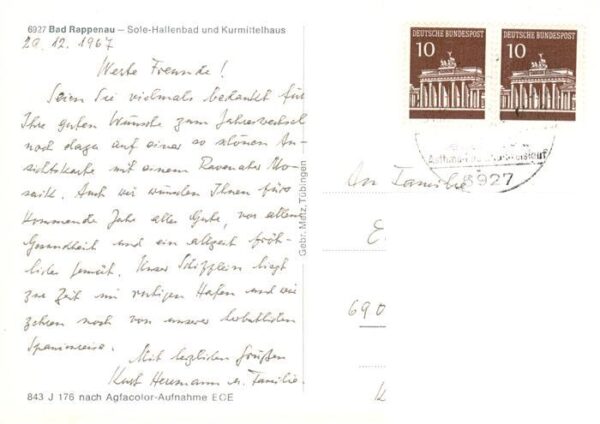 6927 Bad Rappenau – Sole-Hallenbad und Kurmittelhaus
29.12.1967
Werte Freunde!
Seien Sie vielmals bedankt für
Ihre guten Wünsche zum Jahreswechsel
noch dazu auf einer so schönen An-
sichtskarte mit einem Ravenater Mo-
saik. Auch wir wünschen Ihnen fürs
kommende Jahr alles Gute, vor allem
Gesundheit und ein allzeit fröh-
liches Gemüt. Unser Schifflein liegt
zur Zeit im ruhigen Hafen und wir
zehren noch von unserer herbstlichen
Spanienreise.
Mit herzlichen Grüßen
Kurt Herrmann u. Familie
843 J 176 nach Agfacolor-Aufnahme ECE
Gebr. Metz, Tübingen
DEUTSCHE BUNDESPOST
10
DEUTSCHE BUNDESPOST
10
6927
An Familie
E
690